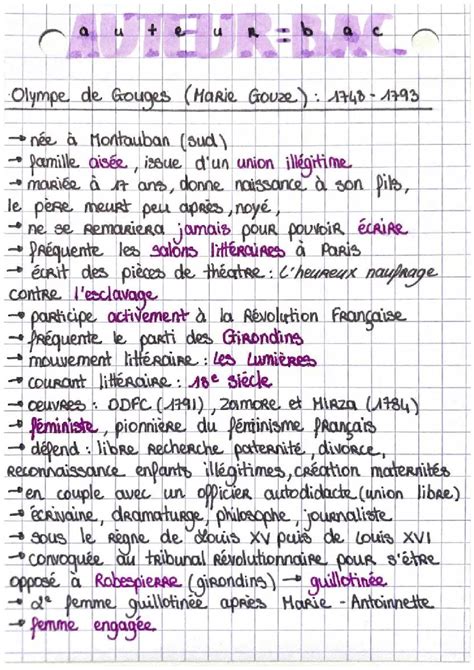 auteur=bac
AUTEUR BAC
Olympe de Gouges (Marie Gouze) : 1748 - 1793
→ née à Montauban (sud)
→ famille aisée, issue d'un union illégitime
→ mariée à 17 ans, donne naissance à son fils,
le père meurt peu après, noyé,
→ ne se remariera jamais pour pouvoir écrire
→ fréquente les salons littéraires à Paris
→ écrit des pièces de théatre : L'heureux naufrage
contre l'esclavage
→ participe activement à la Révolution Française
→ fréquente le parti des Girondins
→ mouvement littéraire : Les Lumières
→ courant littéraire : 18e siècle
→ oeuvres : DDFC (1791), Zamore et Mirza (1784)
→ féministe, pionnière du féminisme français
→ défend : libre recherche paternité, divorce,
reconnaissance enfants illégitimes, création maternités
→ en couple avec un officier autodidacte (union libre)
→ écrivaine, dramaturge, philosophe, journaliste
→ sous le règne de Louis XV puis de Louis XVI
→ convoquée au tribunal révolutionnaire pour s'être
opposé à Robespierre (girondins) → guillotinée
→ 2e femme guillotinée après Marie - Antoinnette
→ femme engagée